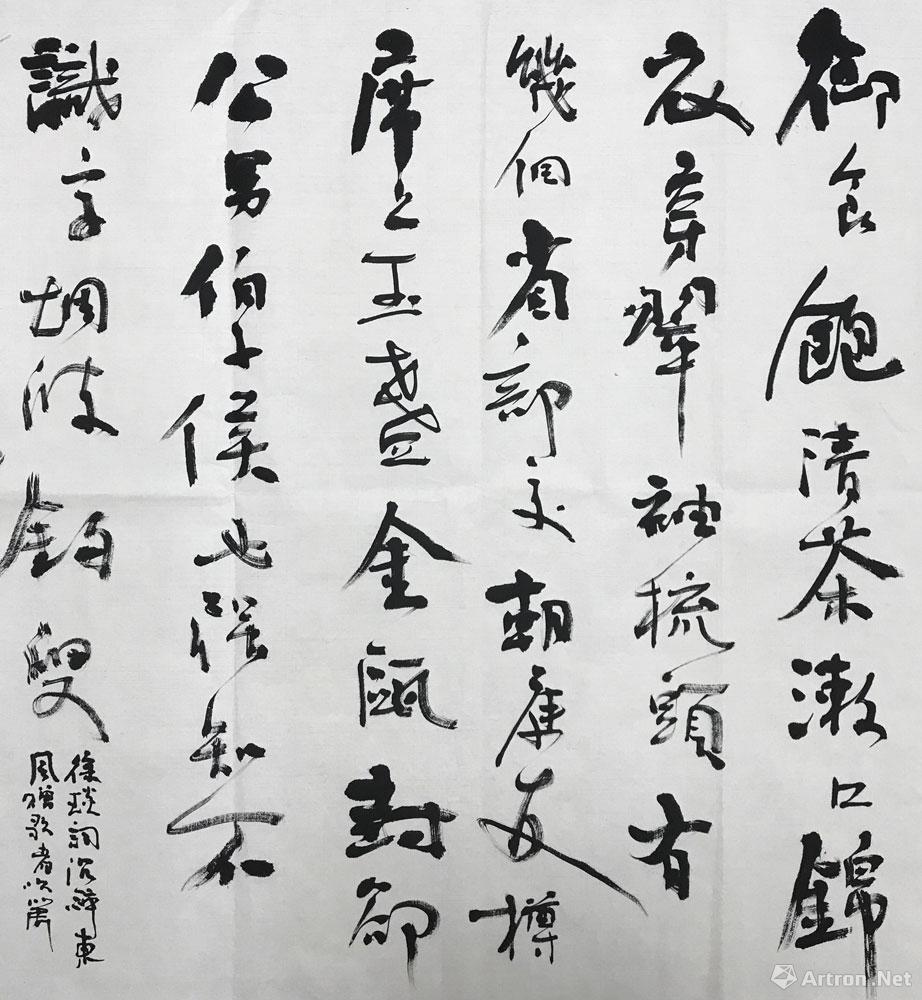 御食飽清茶漱口錦
衣穿翠袖梳頭有
幾個省部交朝廷友樽
席上玉盞金甌封卻
公男伯子侯也強如不
識字烟波釣叟
徐琰詞沉醉東
風贈歌者吹簫
Artron.Net